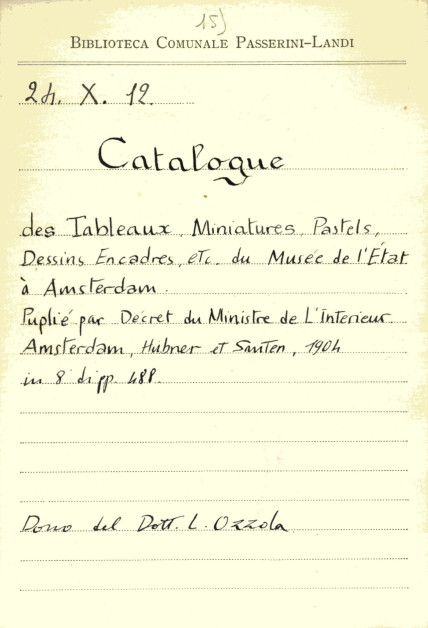 15)
BIBLIOTECA COMUNALE PASSERINI-LANDI
24. X. 12.
Catalogue
des Tableaux, Miniatures, Pastels,
Dessins Encadres, etc. du Musée de l'État
à Amsterdam.
Puplié par Décret du Ministre de L'Interieur.
Amsterdam, Hubner et Santen, 1904
in 8° di pp. 488.
Dono del Dott. L. Ozzola